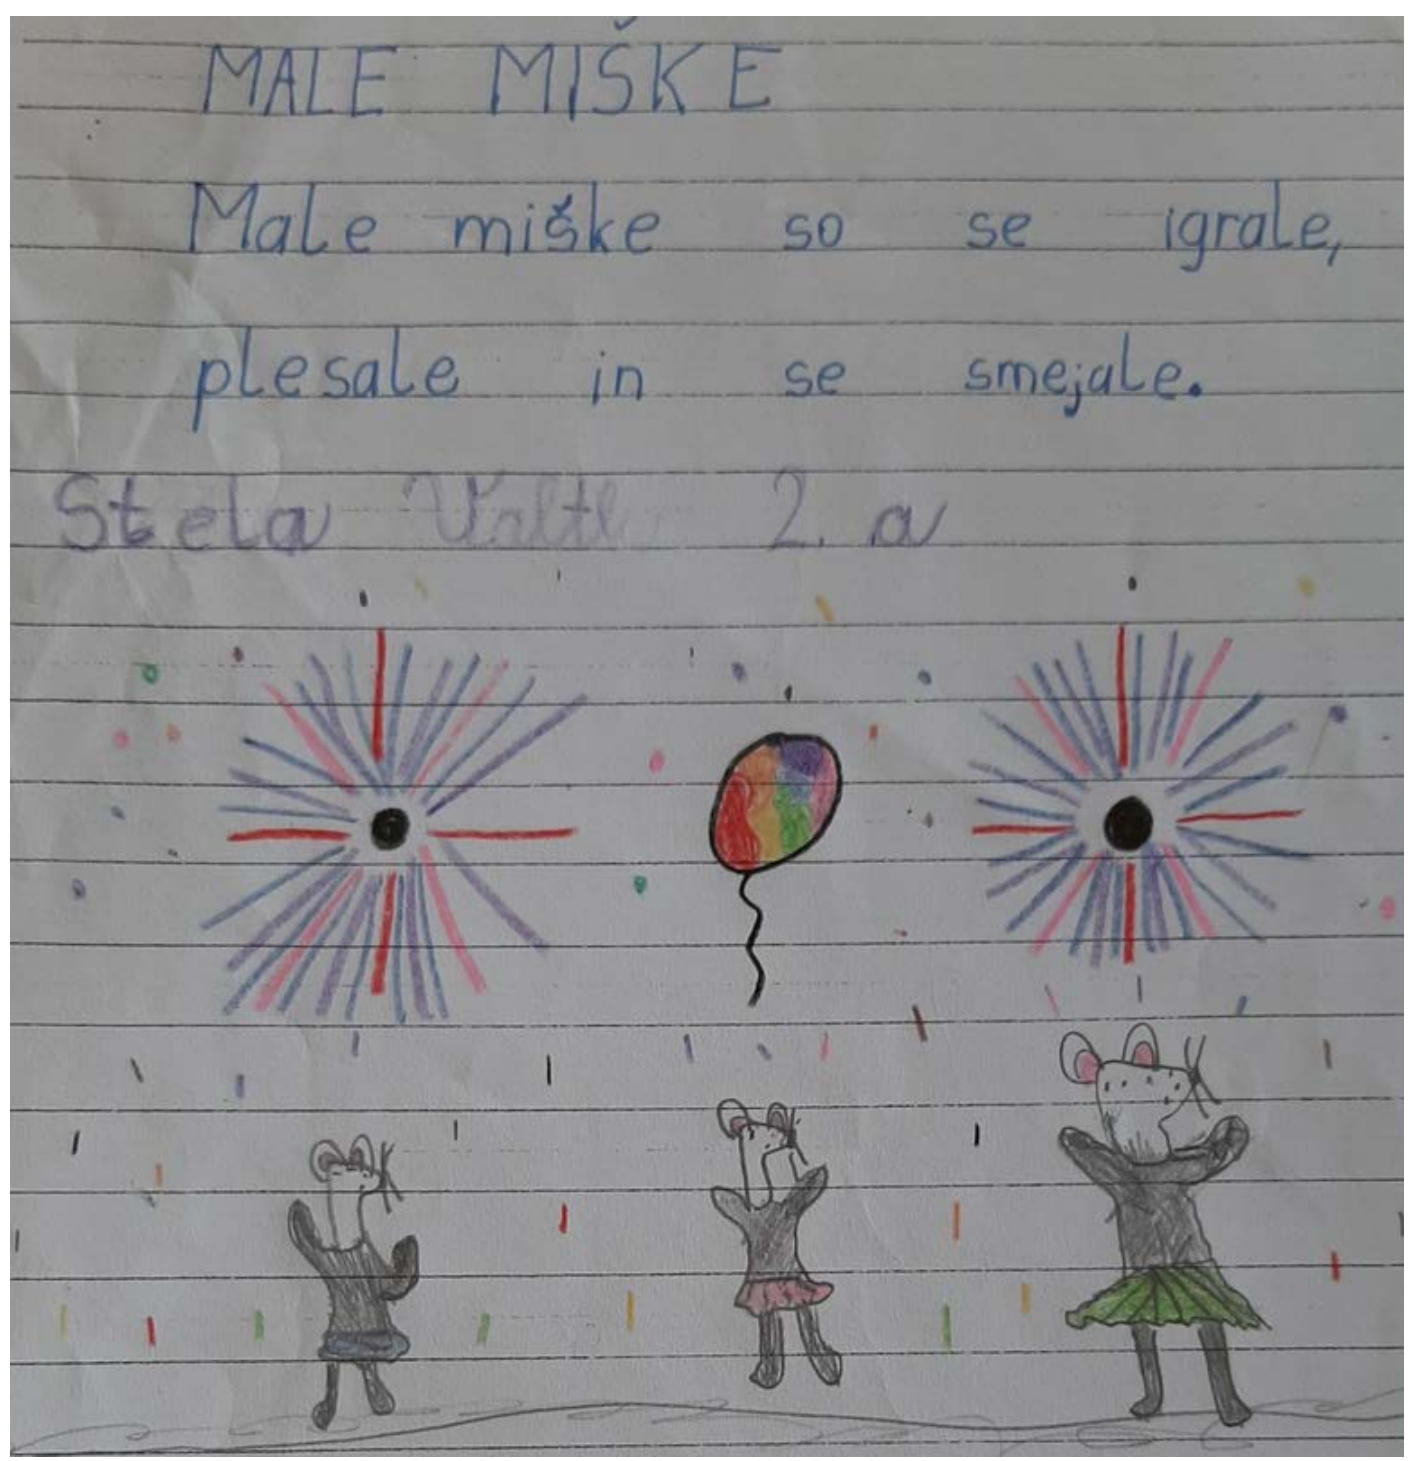 MALE MIŠKE
Male miške so se igrale,
plesale in se smejale.
Stela 2. a